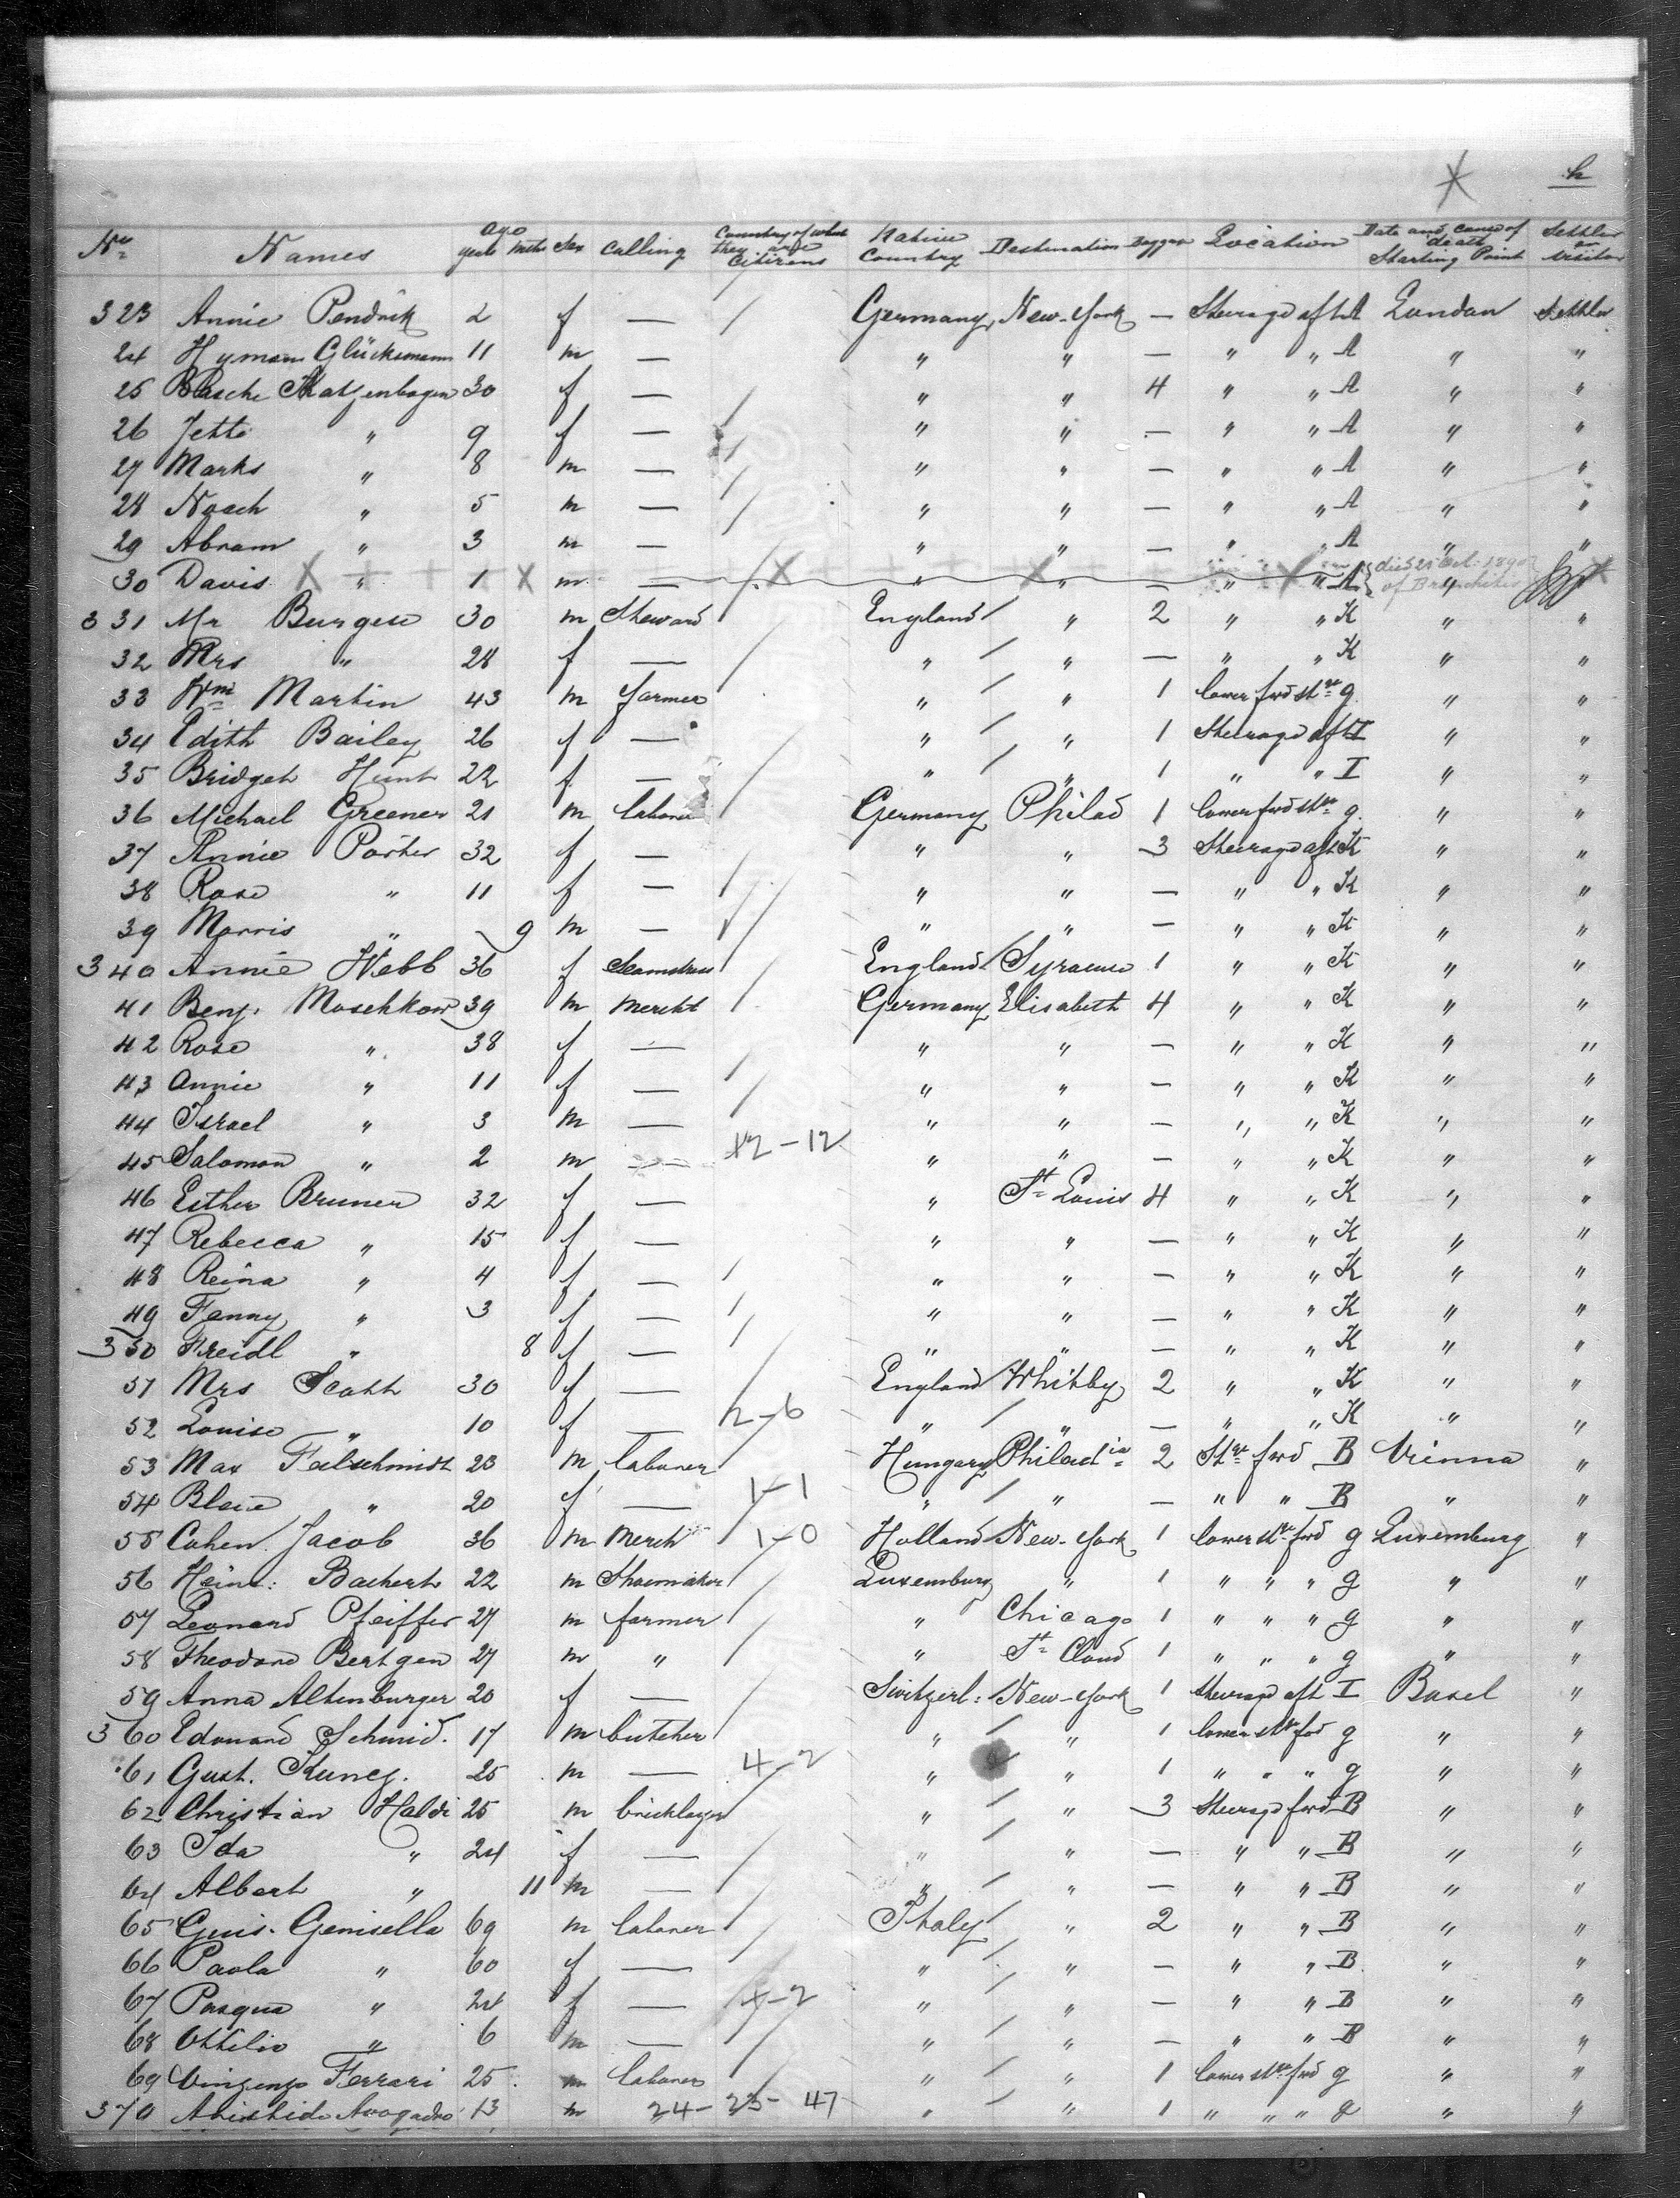 h
No Names Age years mths Sex Calling Country of what they are Citizens Native Country Destination Baggage Location Date and cause of death Starting Point Settler or visitor
323 Annie Pendrik 2 f — / Germany New-York — Steerage aft A London Settler
24 Hyman Glücksmann 11 m — " " — " " A " "
25 Blasche Katzenbogen 30 f — " " 4 " " A " "
26 Jette " 9 f — / " " — " " A " "
27 Marks " 8 m — / " " — " " A " "
28 Nosch " 5 m — / " " — " " A " "
29 Abram " 3 m — / " " — " " A " "
30 Davis " 1 m — " " — " " A died 25 Oct: 1890 of Bronchitis "
331 Mr Burgess 30 m Steward England / " 2 " " K " "
32 Mrs " 28 f — / " / " — " " K " "
33 Wm Martin 43 m farmer " / " 1 lower fwd stre g " "
34 Edith Bailey 26 f — / " / " 1 Steerage aft I " "
35 Bridget Hunt 22 f — / " / " 1 " " I " "
36 Michael Greener 21 m labourer Germany Philad 1 lower fwd stre g " "
37 Annie Porter 32 f — " " 3 Steerage aft K " "
38 Rose " 11 f — / " " — " " K " "
39 Morris " — 9 m — / " " — " " K " "
340 Annie Webb 36 f Seamstress England / Syracuse 1 " " K " "
41 Benj. Moschkow 39 m mercht / Germany Elisabeth 4 " " K " "
42 Rose " 38 f — " " — " " K " "
43 Annie " 11 f — / " " — " " K " "
44 Israel " 3 m — / " " — " " K " "
45 Salomon " 2 m — 12-12 " " — " " K " "
46 Esther Bruner 32 f — " St Louis 4 " " K " "
47 Rebecca " 15 f — " " — " " K " "
48 Reina " 4 f — / " " — " " K " "
49 Fanny " 3 f — / " " — " " K " "
350 Freidl " 8 f — / " " — " " K " "
51 Mrs Scott 30 f — / England Whitby 2 " " K " "
52 Louise " 10 f — 12-6 " / " — " " K " "
53 Max Falschmidt 23 m labourer Hungary Philadia 2 Stre fwd B Vienna "
54 " 20 f — 1-1 " / " — " " B " "
55 Cohen Jacob 36 m merch 1-0 Holland New-York 1 lower stre fwd g Luxemburg "
56 Heinr: Bachert 22 m Shoemaker / Luxemburg " 1 " " " g " "
57 Leonard Pfeiffer 27 m farmer / " Chicago 1 " " " g " "
58 Theodore Bertgen 27 m " / " St Cloud 1 " " " g " "
59 Anna Altenburger 20 f — / Switzerl: New-York 1 Steerage aft I Basel "
360 Edouard Schmid. 17 m butcher / " / " 1 lower stre fwd g " "
61 Gust. Kuney. 25 m — 4-2 " / " 1 " " " g " "
62 Christian Haldi 25 m bricklayer " / " 3 Steerage fwd B " "
63 Ida " 24 f — / " / " — " " B " "
64 Albert " 11 m — / " / " — " " B " "
65 Guis. Genisella 69 m labourer / Italy / " 2 " " B " "
66 Paola " 60 f — / " / " — " " B " "
67 Pasqua " 24 f — 4-2 " / " — " " B " "
68 Ottilio " 6 m — / " / " — " " B " "
69 Vinzenzo Ferrari 25 m labourer / " / " 1 lower stre fwd g " "
370 Aristide Avogadro 13 m 24-23- 47 " / " 1 " " " g " "